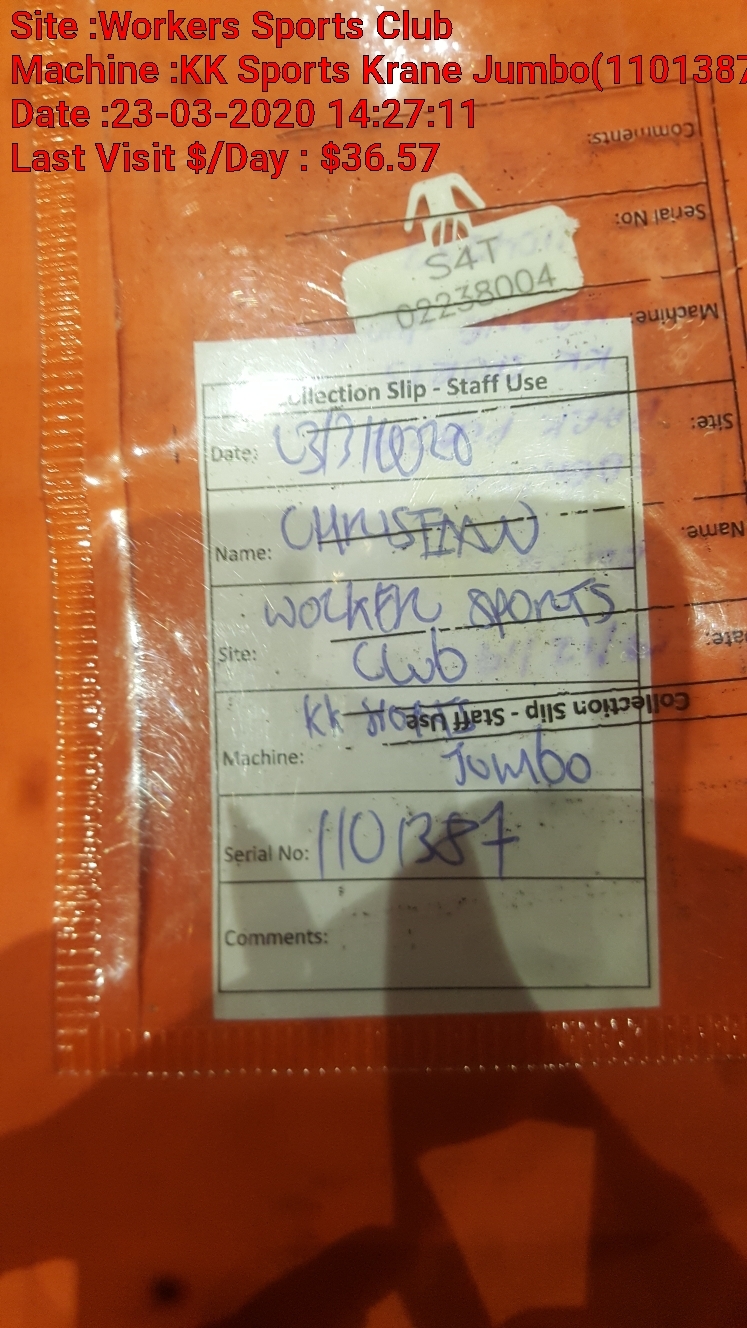 Site :Workers Sports Club
Machine :KK Sports Krane Jumbo(1101387
Date :23-03-2020 14:27:11
Last Visit $/Day : $36.57
Comments:
Serial No:
Machine:
Site:
Name:
Date:
Collection Slip - Staff Use
S4T
02238004
Collection Slip - Staff Use
Date: 23/3/2020
Name: CHRISTIAN
WORKER SPORTS
Site: Club
KK SPORTS
Machine: Jumbo
Serial No: 1101387
Comments: